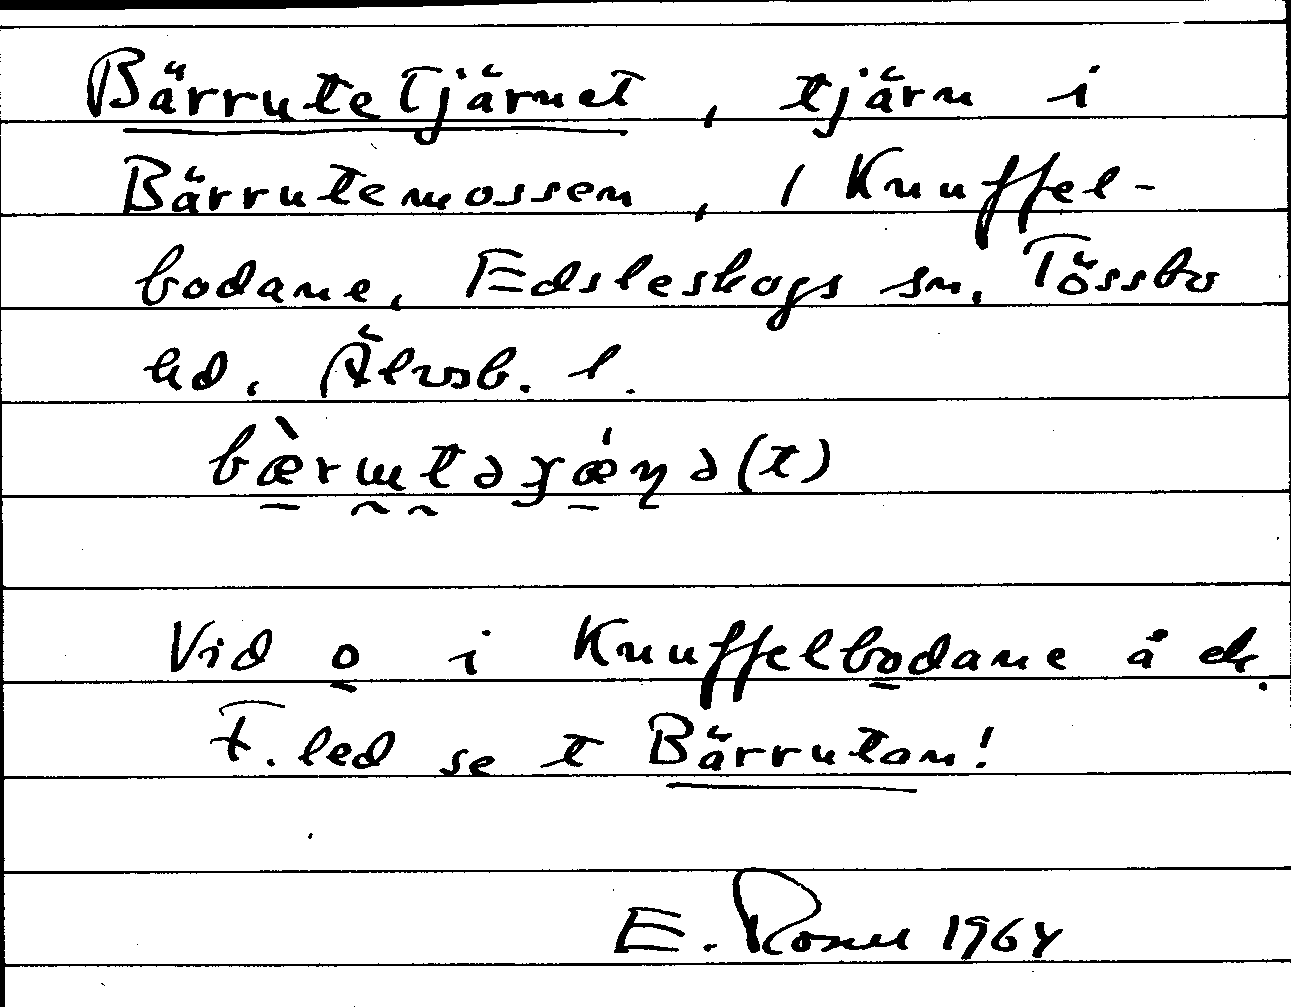 Bärrutetjärnet, tjärn i
Bärrutemossen, 1 Knuffel-
bodane, Edsleskogs sn, Tössbo
hd, Älvsb. l.
Vid o i Knuffelbodane å ek.
F. led se t Bärrutan!
E. Rosell 1964